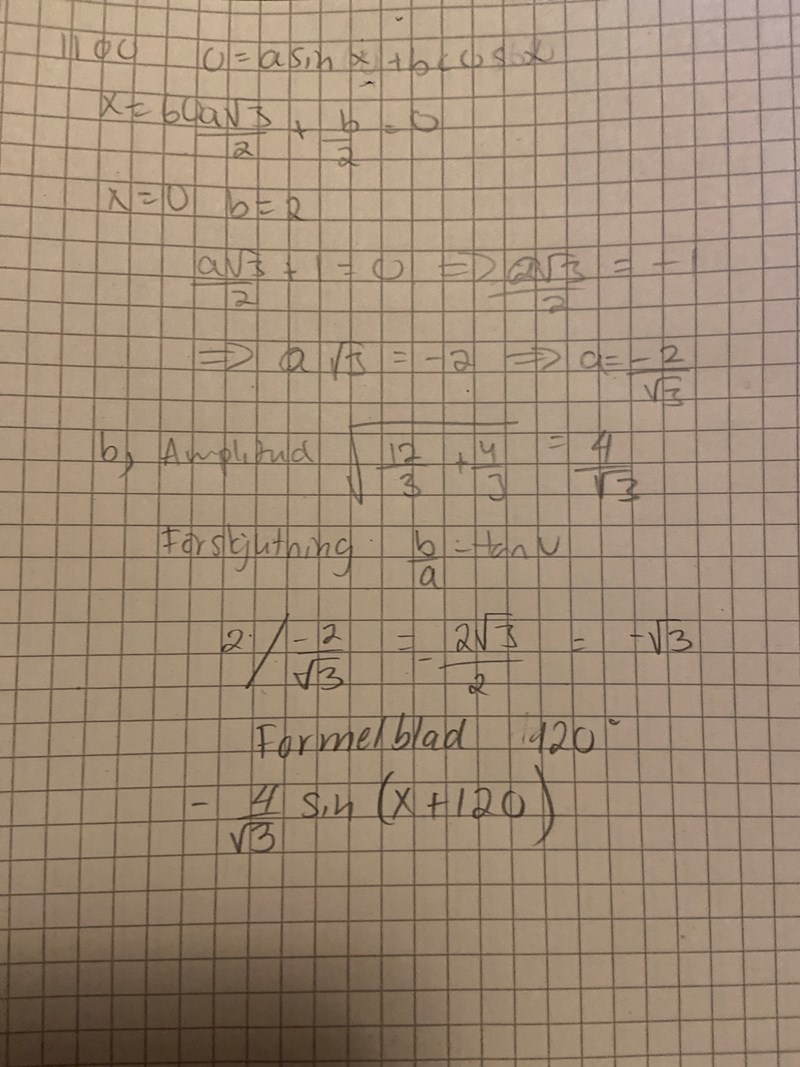 0 = a sin x + b cos x
x = 60 a√3/2 + b/2 = 0
x = 0 b = 2
a√3/2 + 1 = 0 => a√3/2 = -1
=> a√3 = -2 => a = -2/√3
b) Amplitud √(12/3 + 4/3) = 4/√3
Förskjuthing b/a = tan v
2 / (-2/√3) = - 2√3/2 = -√3
Formelblad 120°
- 4/√3 sin (x + 120)